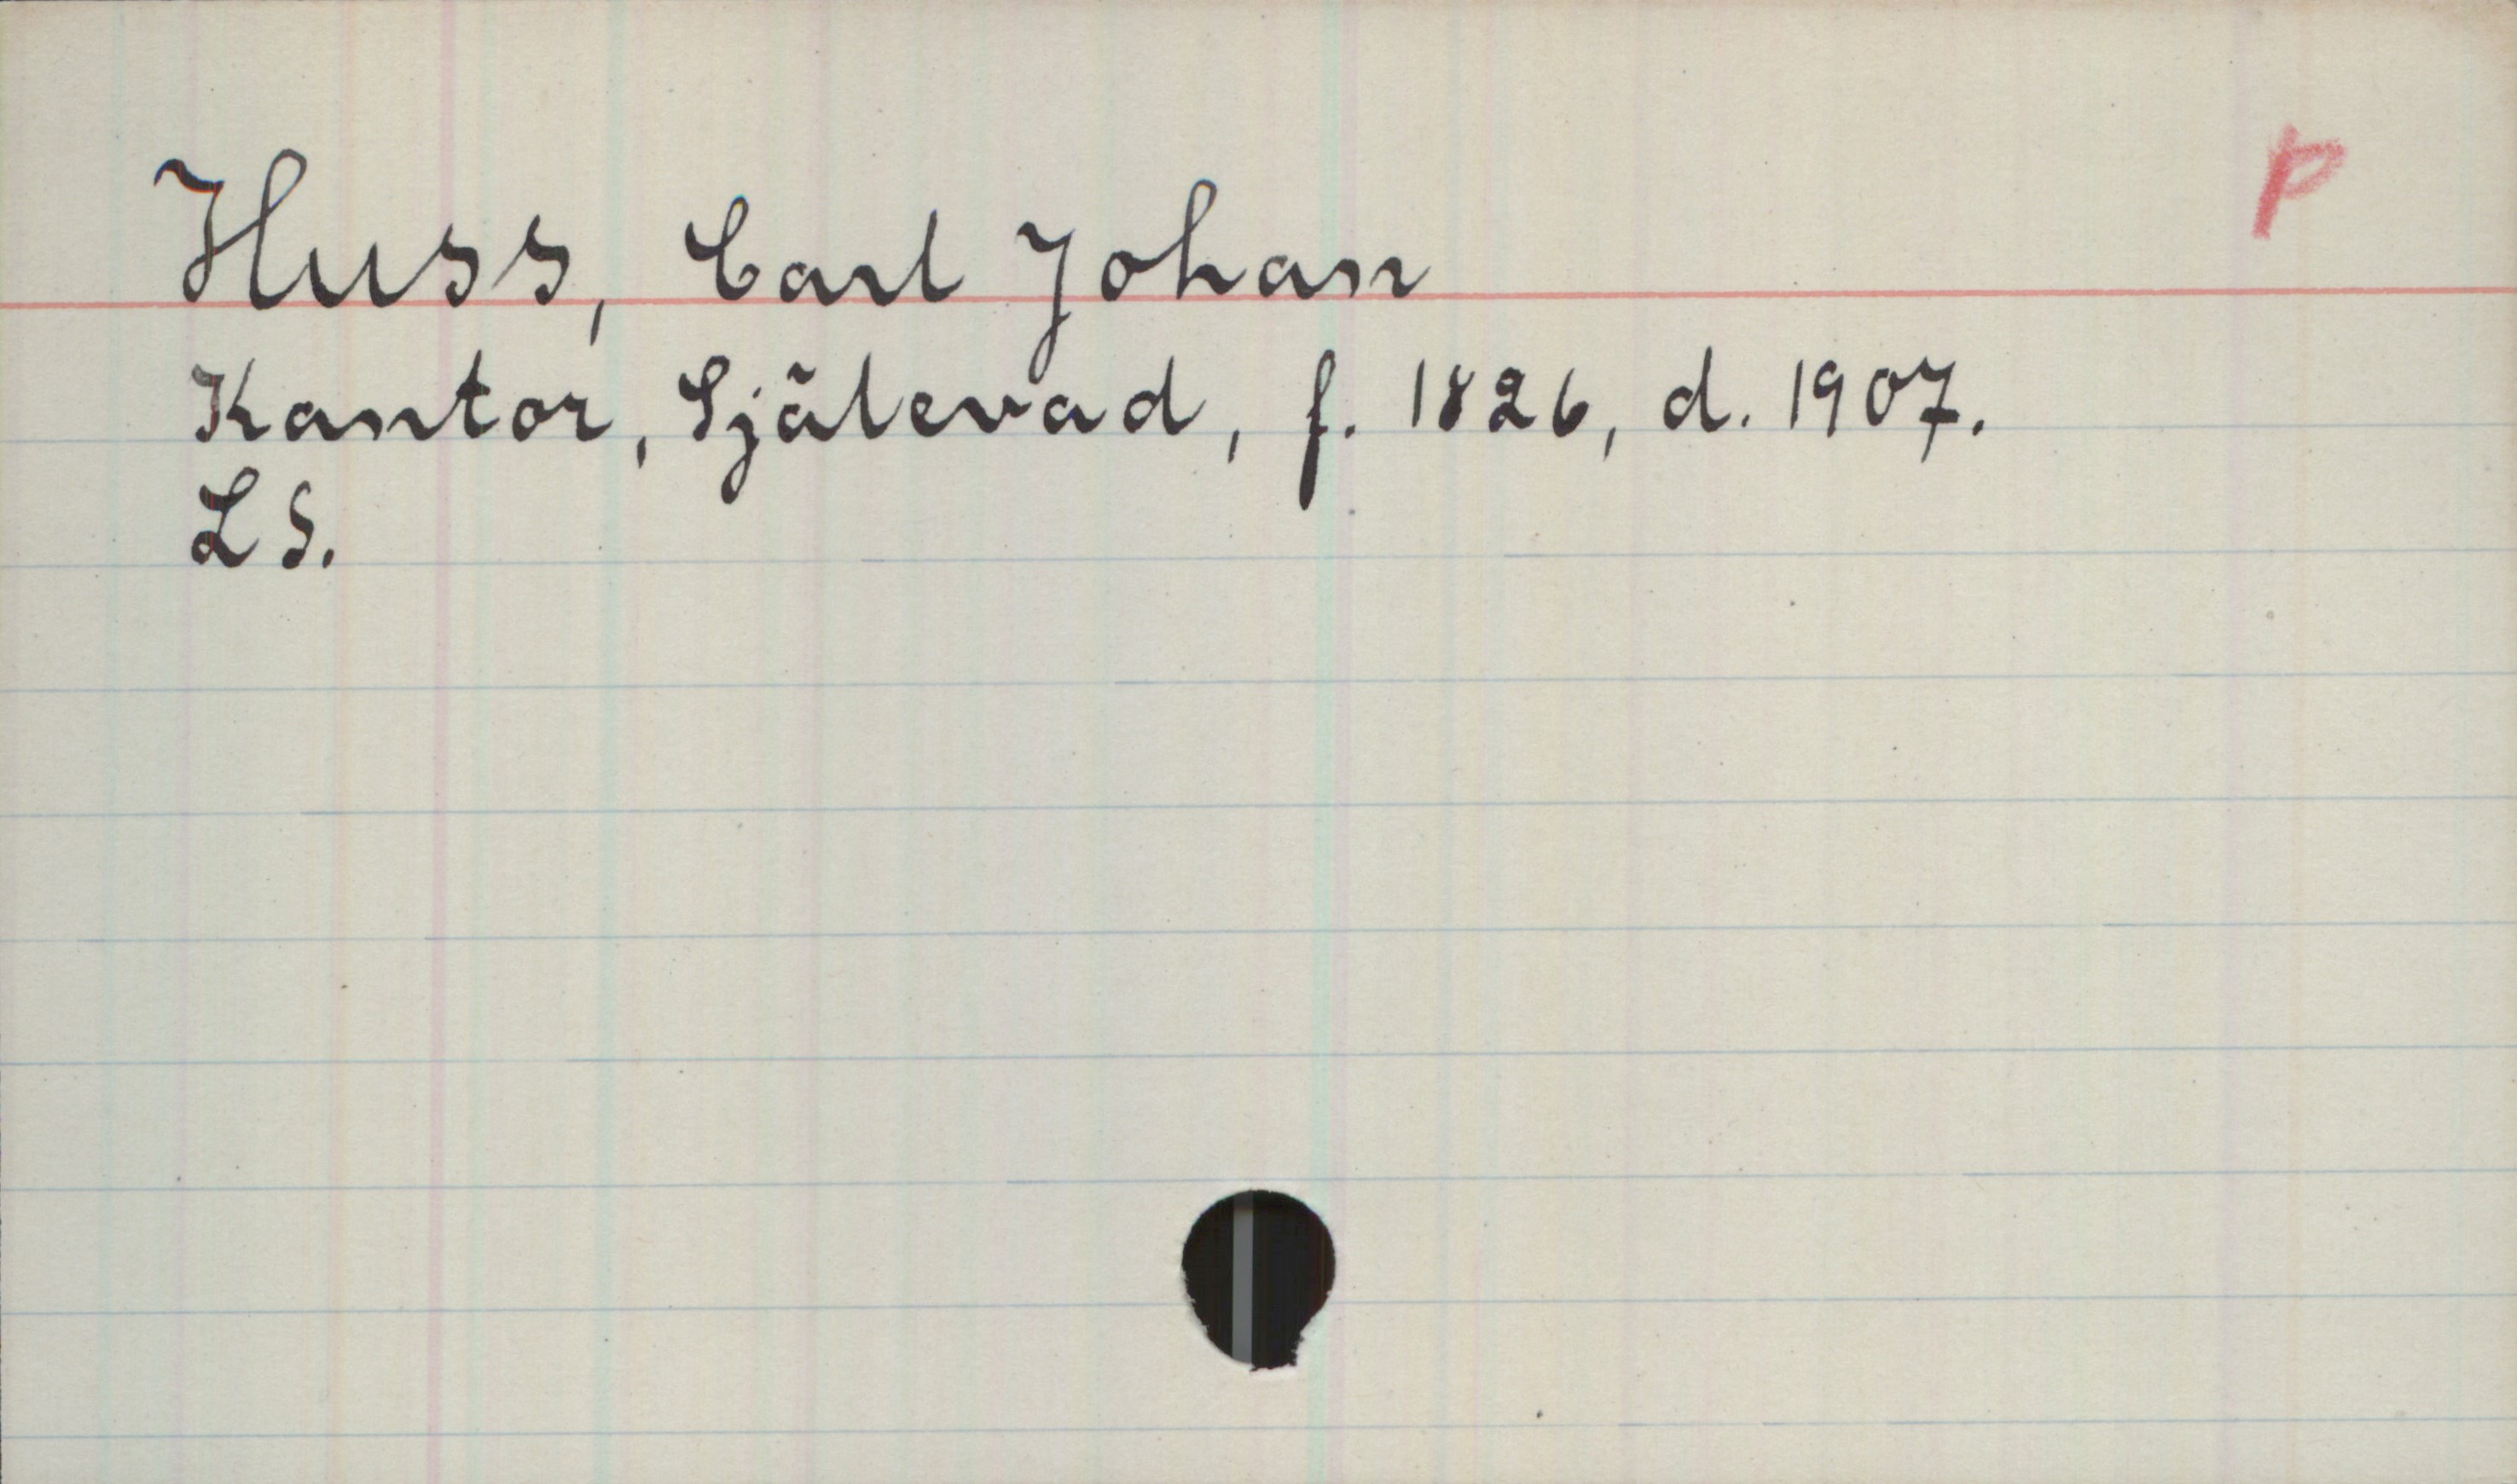 p
Huss, Carl Johan
Kantor, Själevad, f. 1826, d. 1907.
LS.